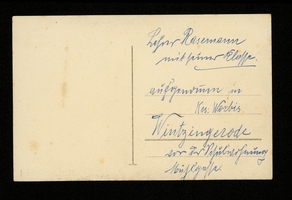 Lehrer Rosemann
mit seiner Klasse.
aufgenommen in
Kr. Worbis
Wintzingerode
vor der Schulwohnung